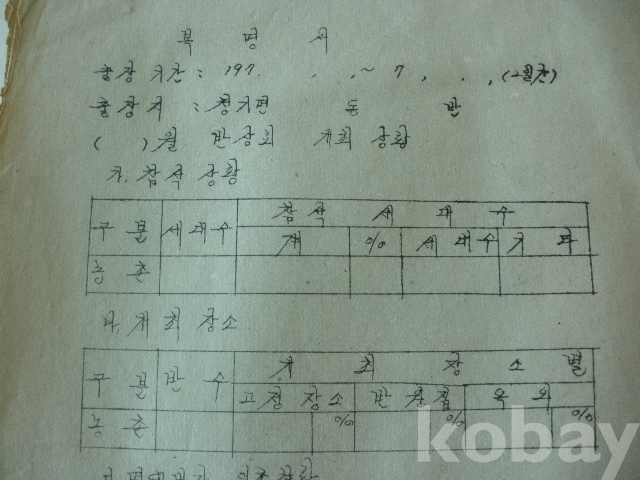 복 명 서
출장 기간 : 197. . . ~ 7 . . . (2일간)
출장지 : 청기면 동 반
( )월 반상회 개최 상황
가. 참석 상황
구 분 세대수 참 석 세 대 수
계 % 세 대 수 기 타
농 촌
나. 개최 장소
구 분 반 수 개 최 장 소 별
고정 장소 반장집 옥 외
농 촌 % % %
kobay